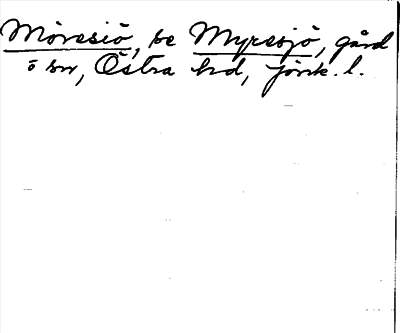 Möresiö, se Myresjö, gård
o sn, Östra hd, Jönk. l.